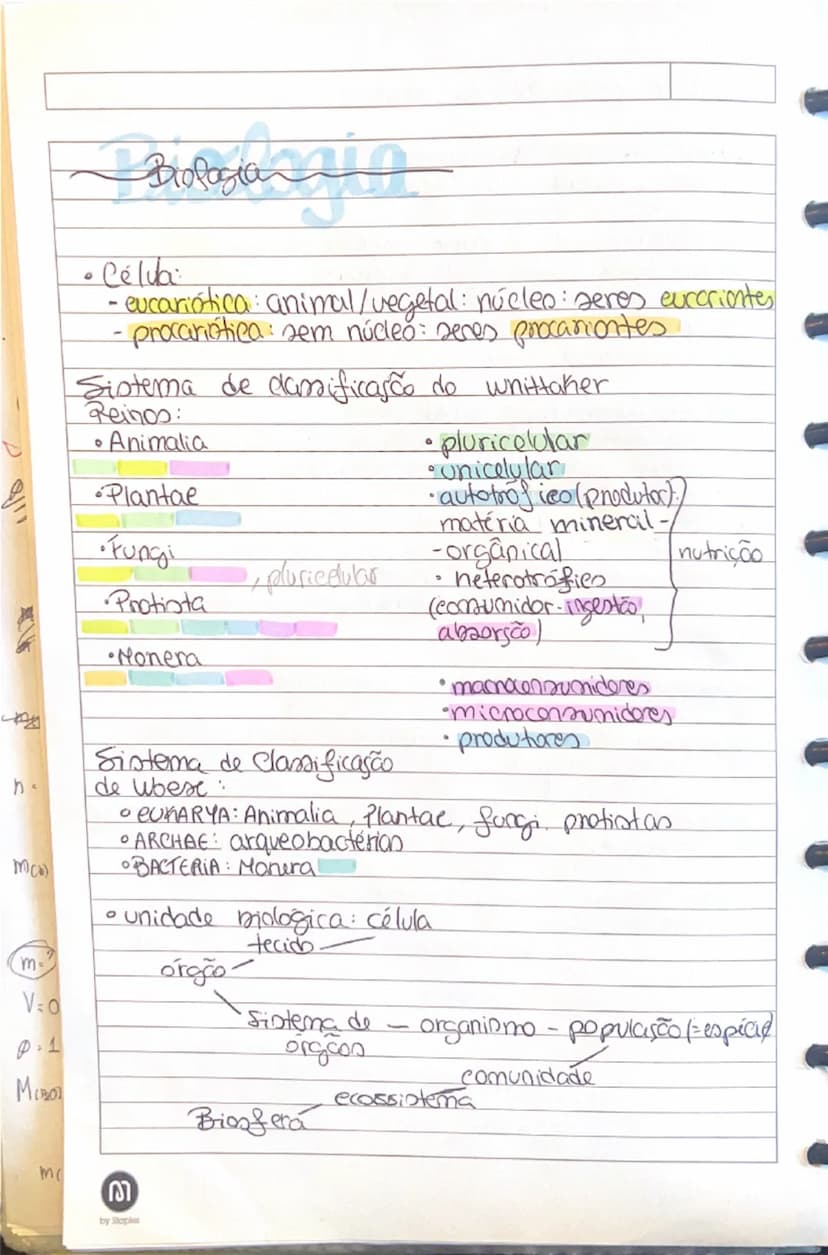 Biologia
Biologia
• Célula:
- eucariótica: animal/vegetal: núcleo: seres eucariontes
- procariótica: sem núcleo: seres procariontes
Sistema de classificação do Whittaker
Reinos:
• Animalia
• Plantae
• Fungi
, pluricelular
• Protista
• Monera
• pluricelular
• unicelular
• autotrófico (produtor):
matéria mineral -
- orgânical
• heterotrófico
(consumidor - ingestão,
absorção)
nutrição
• macroconsumidores
• microconsumidores
• produtores
Sistema de Classificação
de Woese:
• EUKARYA: Animalia, Plantae, fungi, protistas
• ARCHAE: arqueobactérias
• BACTERIA: Monera
• unidade biológica: célula
tecido
órgão
Sistema de — organismo — população (= espécie)
órgãos
comunidade
ecossistema
Biosfera
n =
m(
m=
V=0
M(
m(
by Staples